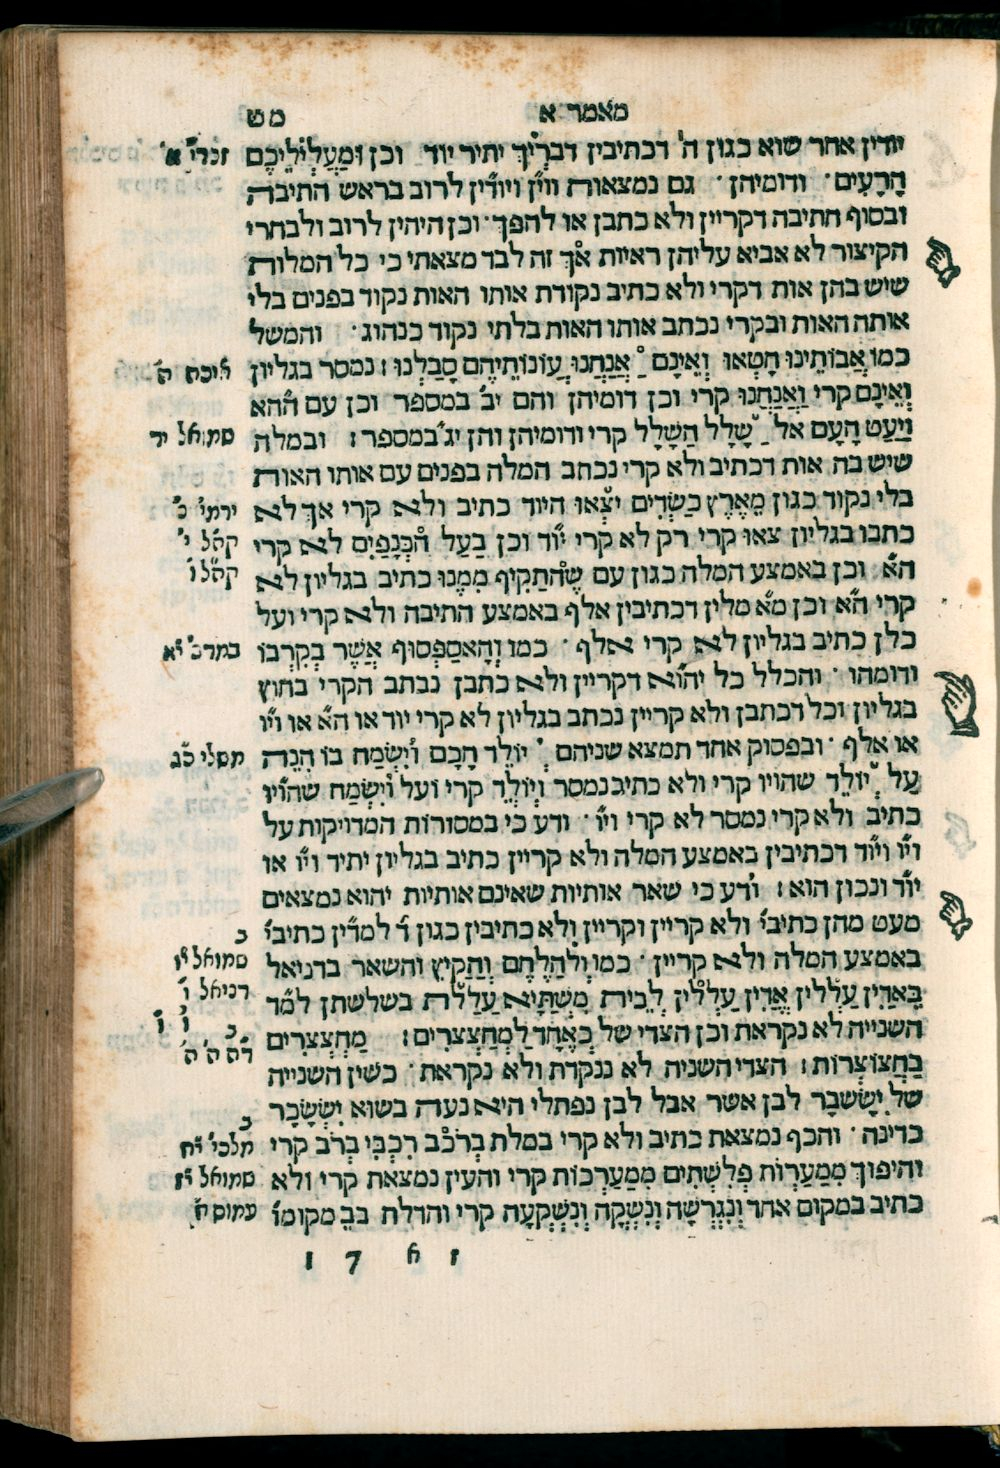 מאמר א מט
יודין אחר שוא כגון ה' דכתיבין דבריך יתיר יוד וכן ומעלליליכם זכרי' א'
הָרָעִים · ודומיהן · גם נמצאות ווין ויודין לרוב בראש התיבה
ובסוף התיבה דקריין ולא כתבן או להפך · וכן היהין לרוב ולבחרי
הקיצור לא אביא עליהן ראיות אך זה לבד מצאתי כי כל המלות
שיש בהן אות דקרי ולא כתיב נקודת אותו האות נקוד בפנים בלי
אותה האות ובקרי נכתב אותו האות בלתי נקוד כנהוג · והמשל
כמו אֲבוֹתֵינוּ חָטְאוּ וְאֵינָם אֲנַחְנוּ עֲוֹנוֹתֵיהֶם סָבַלְנוּ : נמסר בגליון איכה ה'
וְאֵינָם קרי וַאֲנַחְנוּ קרי וכן דומיהן והם יב' במספר וכן עם ההא
וַיַּעַט הָעָם אל שָׁלָל הַשָּׁלָל קרי ודומיהן והן יג' במספר : ובמלה שמואל יד
שיש בה אות דכתיב ולא קרי נכתב המלה בפנים עם אותו האות
בלי נקוד כגון מֵאֶרֶץ כַּשְׂדִּים יצְאוּ היוד כתיב ולא קרי אך לא ירמי' נ'
כתבו בגליון צאו קרי רק לא קרי יוד וכן בַעַל הכְּנָפַיִם לא קרי קהל י'
הא וכן באמצע המלה כגון עם שֶׁהתַקִיף מִמֶנוּ כתיב בגליון לא קהל ו'
קרי הא וכן מא מלין דכתיבין אלף באמצע התיבה ולא קרי ועל
כלן כתיב בגליון לא קרי אלף · כמו וְהָאסַפְסוּף אֲשֶׁר בְּקִרְבּוֹ במדב' יא
ודומהו · והכלל כל יהוא דקריין ולא כתבן נכתב הקרי בחוץ
בגליון וכל דכתבן ולא קריין נכתב בגליון לא קרי יוד או הא או ויו
או אלף · ובפסוק אחד תמצא שניהם יוֹלֵד חָכָם וישְׂמַח בוֹ הִנֵה משלי כג
על יוֹלֵד שהויו קרי ולא כתיב נמסר וְיוֹלֵד קרי ועל וישְׂמַח שהויו
כתיב ולא קרי נמסר לא קרי ויו · ודע כי במסורות המדויקות על
ויו ויוד דכתיבין באמצע המלה ולא קריין כתיב בגליון יתיר ויו או
יוד ונכון הוא : ודע כי שאר אותיות שאינם אותיות יהוא נמצאים
מעט מהן כתיבי' ולא קריין וקריין ולא כתיבין כגון ד' למדין כתיבי'
ב
באמצע המלה ולא קריין · כמו וּלְהַלֶחֶם וְהַקַיִץ והשאר בדניאל שמואל יו
בֵּאדַיִן עַלְלִין אֱדַיִן עַלְלִין לְבֵית מִשְׁתְּיָא עַלַלת בשלשתן למד דניאל ו'
השנייה לא נקראת וכן הצדי של כְּאֶחָד לַמְחַצְצרִים : מַחְצְצרִים
בַּחֲצוֹצְרוֹת : הצדי השניה לא ננקדת ולא נקראת · כשין השנייה
של יִשָׂשכָר לבן אשר אבל לבן נפתלי היא נעה בשוא יִשְׂשָׂכָר
ב
כדינה · והכף נמצאת כתיב ולא קרי במלת בְּרֹככ רִכְבִּי בְּרֹב קרי מלכי' יח
והיפוך מִמַעַרוֹת פְּלִשְׁתִּים מִמַעַרְכוֹת קרי והעין נמצאת קרי ולא שמואל יז
כתיב במקום אחד וְנִגְרְשָׁה וְנִשְׁקָה וְנִשְׁקְעָה קרי והדלת בב מקומו' עמוס ח'
ז א 7 1